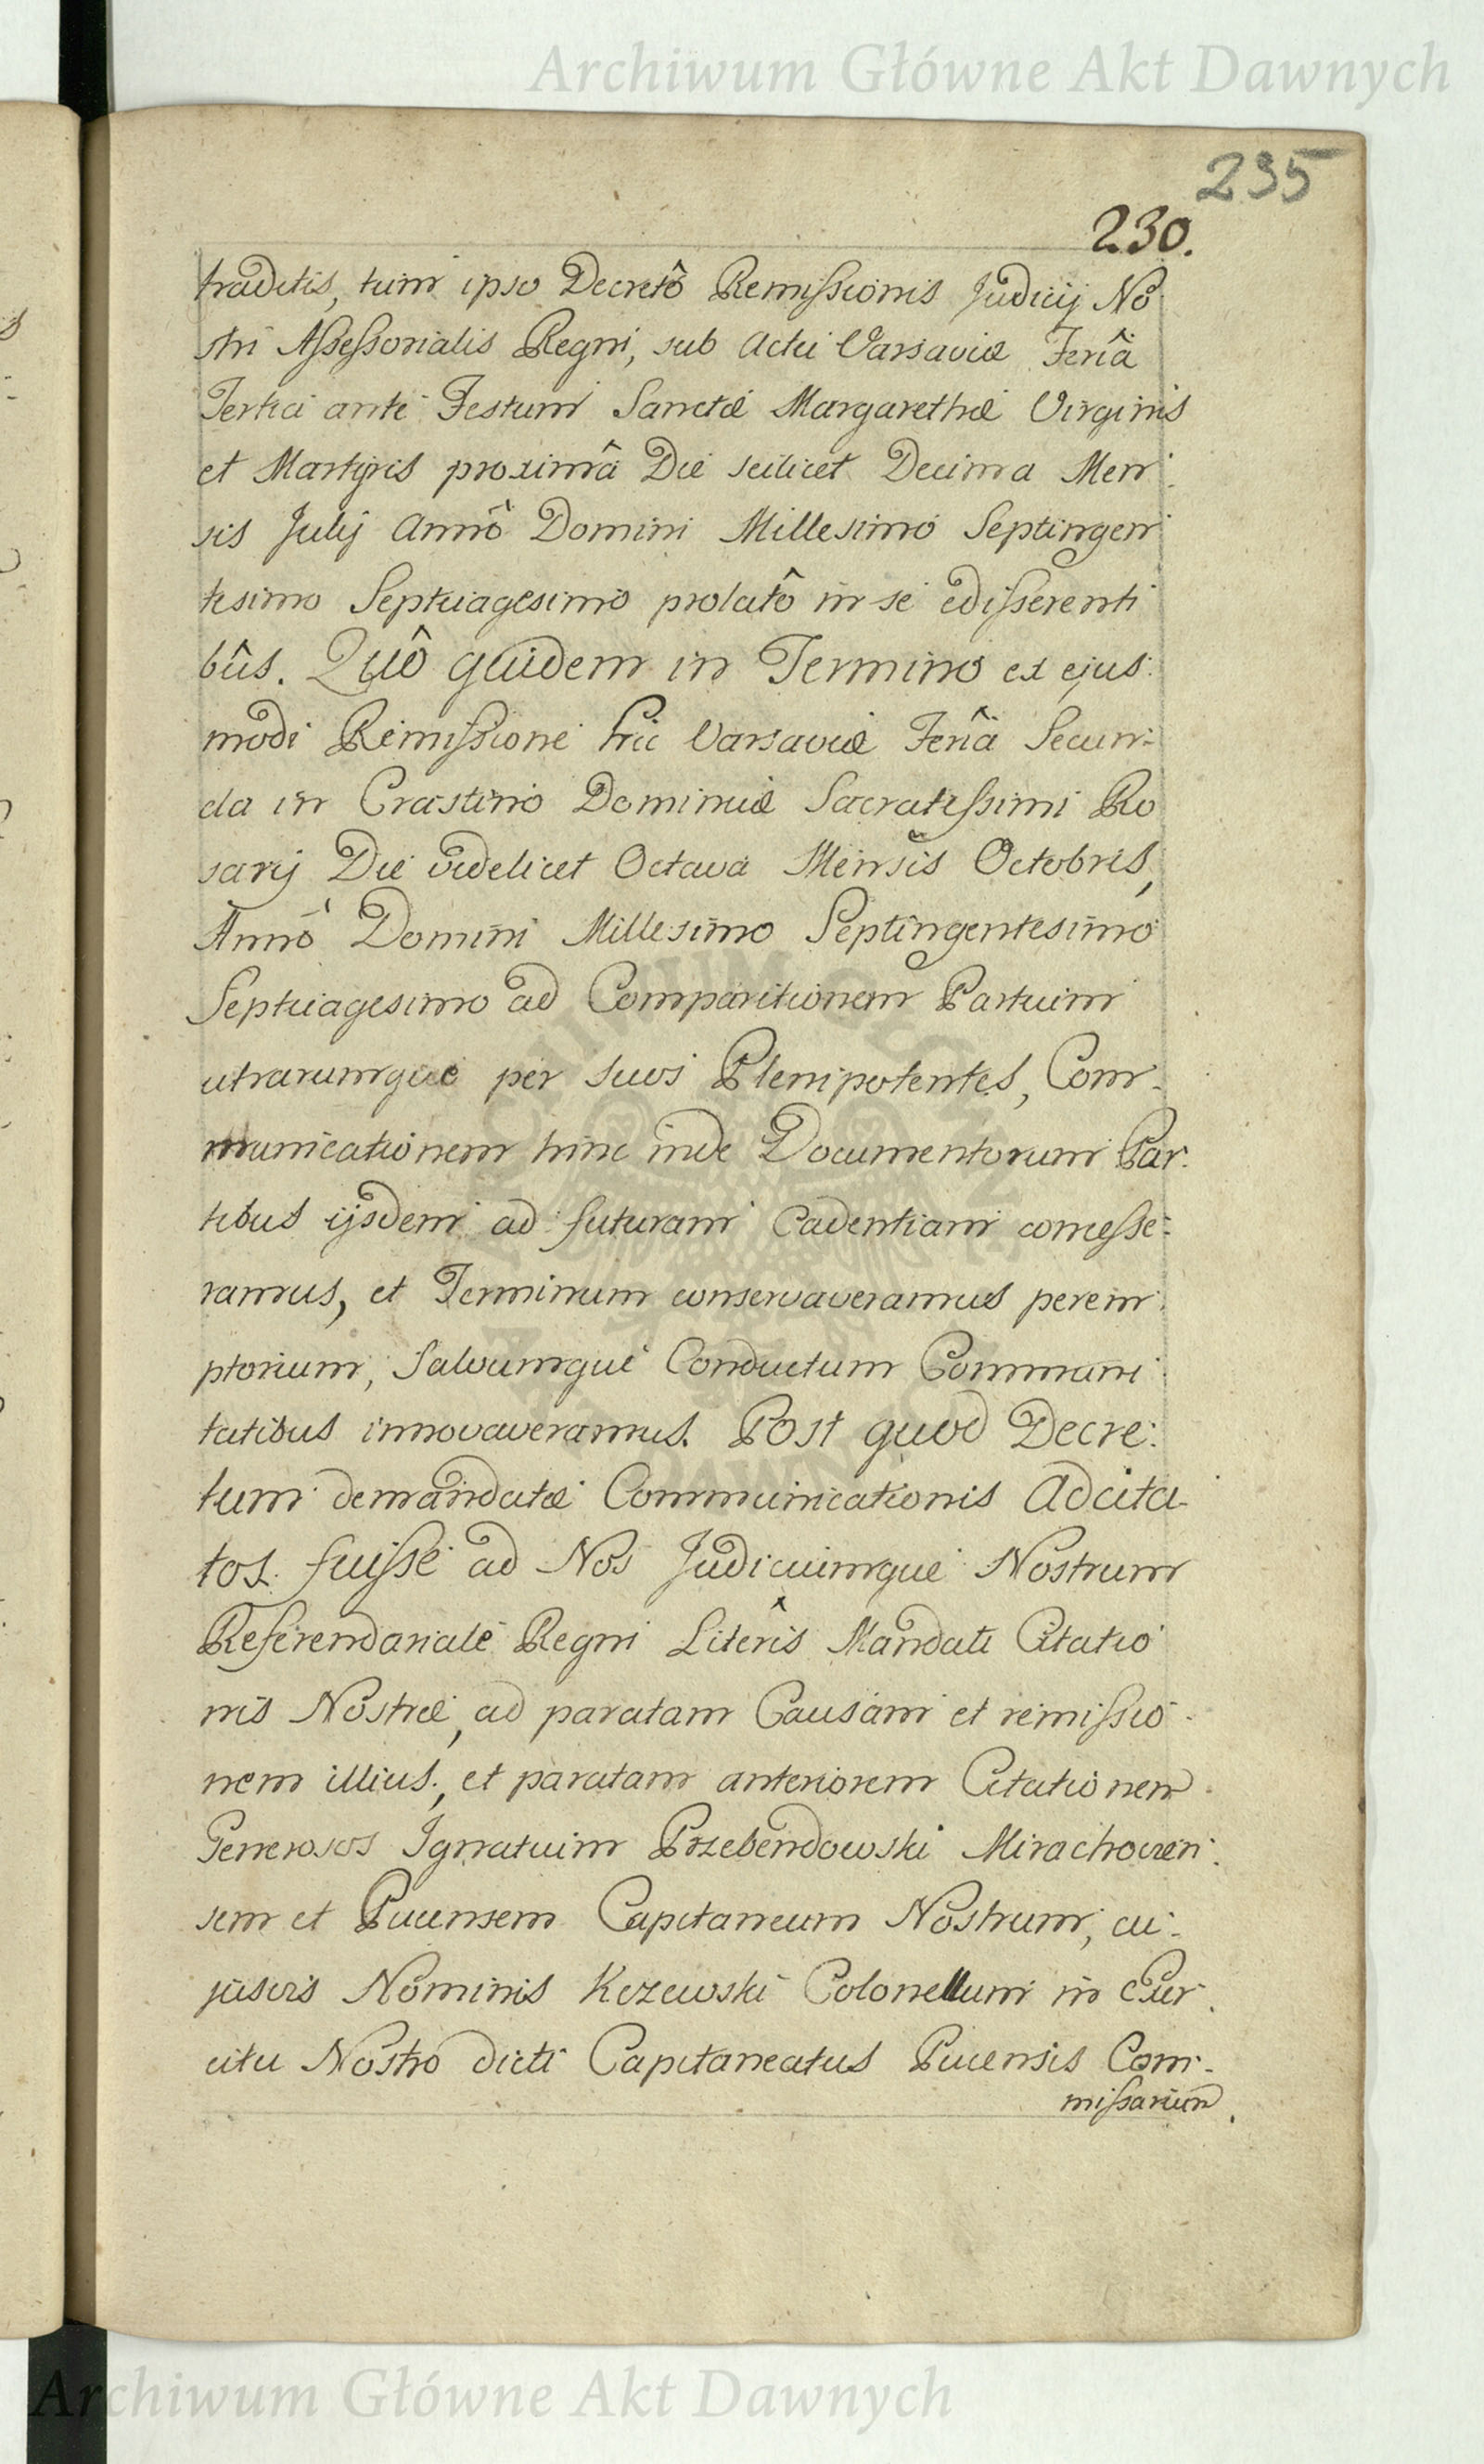 Archiwum Główne Akt Dawnych
235
230.
traditis, tum ipso Decretô Remissionis Judicij No
stri Assessorialis Regni, sub Actu Varsaviæ Feriâ
Tertia ante Festum Sanctæ Margarethæ Virginis
et Martyris proximâ Die scilicet Decima Men:
sis Julij Annô Domini Millesimo Septingen
tesimo Septuagesimo prolatô in se edisserenti
bûs. Quô quidem in Termino ex ejus:
modi Remissione hic Varsaviæ Feriâ Secun:
da in Crastino Dominicæ Sacratissimi Ro
sarij Die videlicet Octava Mensis Octobris,
Annô Domini Millesimo Septingentesimo
Septuagesimo ad Comparitionem Partium
utrarumque per suos Plenipotentes, Com-
municationem hinc inde Documentorum Par:
tibus ijsdem ad futuram Cadentiam comesse:
ramus, et Terminum conservaveramus perem:
ptorium, Salvumque Conductum Communi
tatibus innovaveramus. Post quod Decre:
tum demandatæ Communicationis Adcita-
tos fuisse ad Nos Judiciumque Nostrum
Referendariale Regni Literîs Mandati Citatio
nis Nostræ, ad paratam Causam et remissio-
nem illius, et paratam anteriorem Citationem
Generosos Ignatium Przebendowski Mirachovien:
sem et Pucensem Capitaneum Nostrum, cu:
jusvis Nominis Kczewski Colonellum in Exer:
citu Nostro dicti Capitaneatus Pucensis Com-
missarium
ARCHIWUM GŁÓWNE AKT DAWNYCH
Archiwum Główne Akt Dawnych